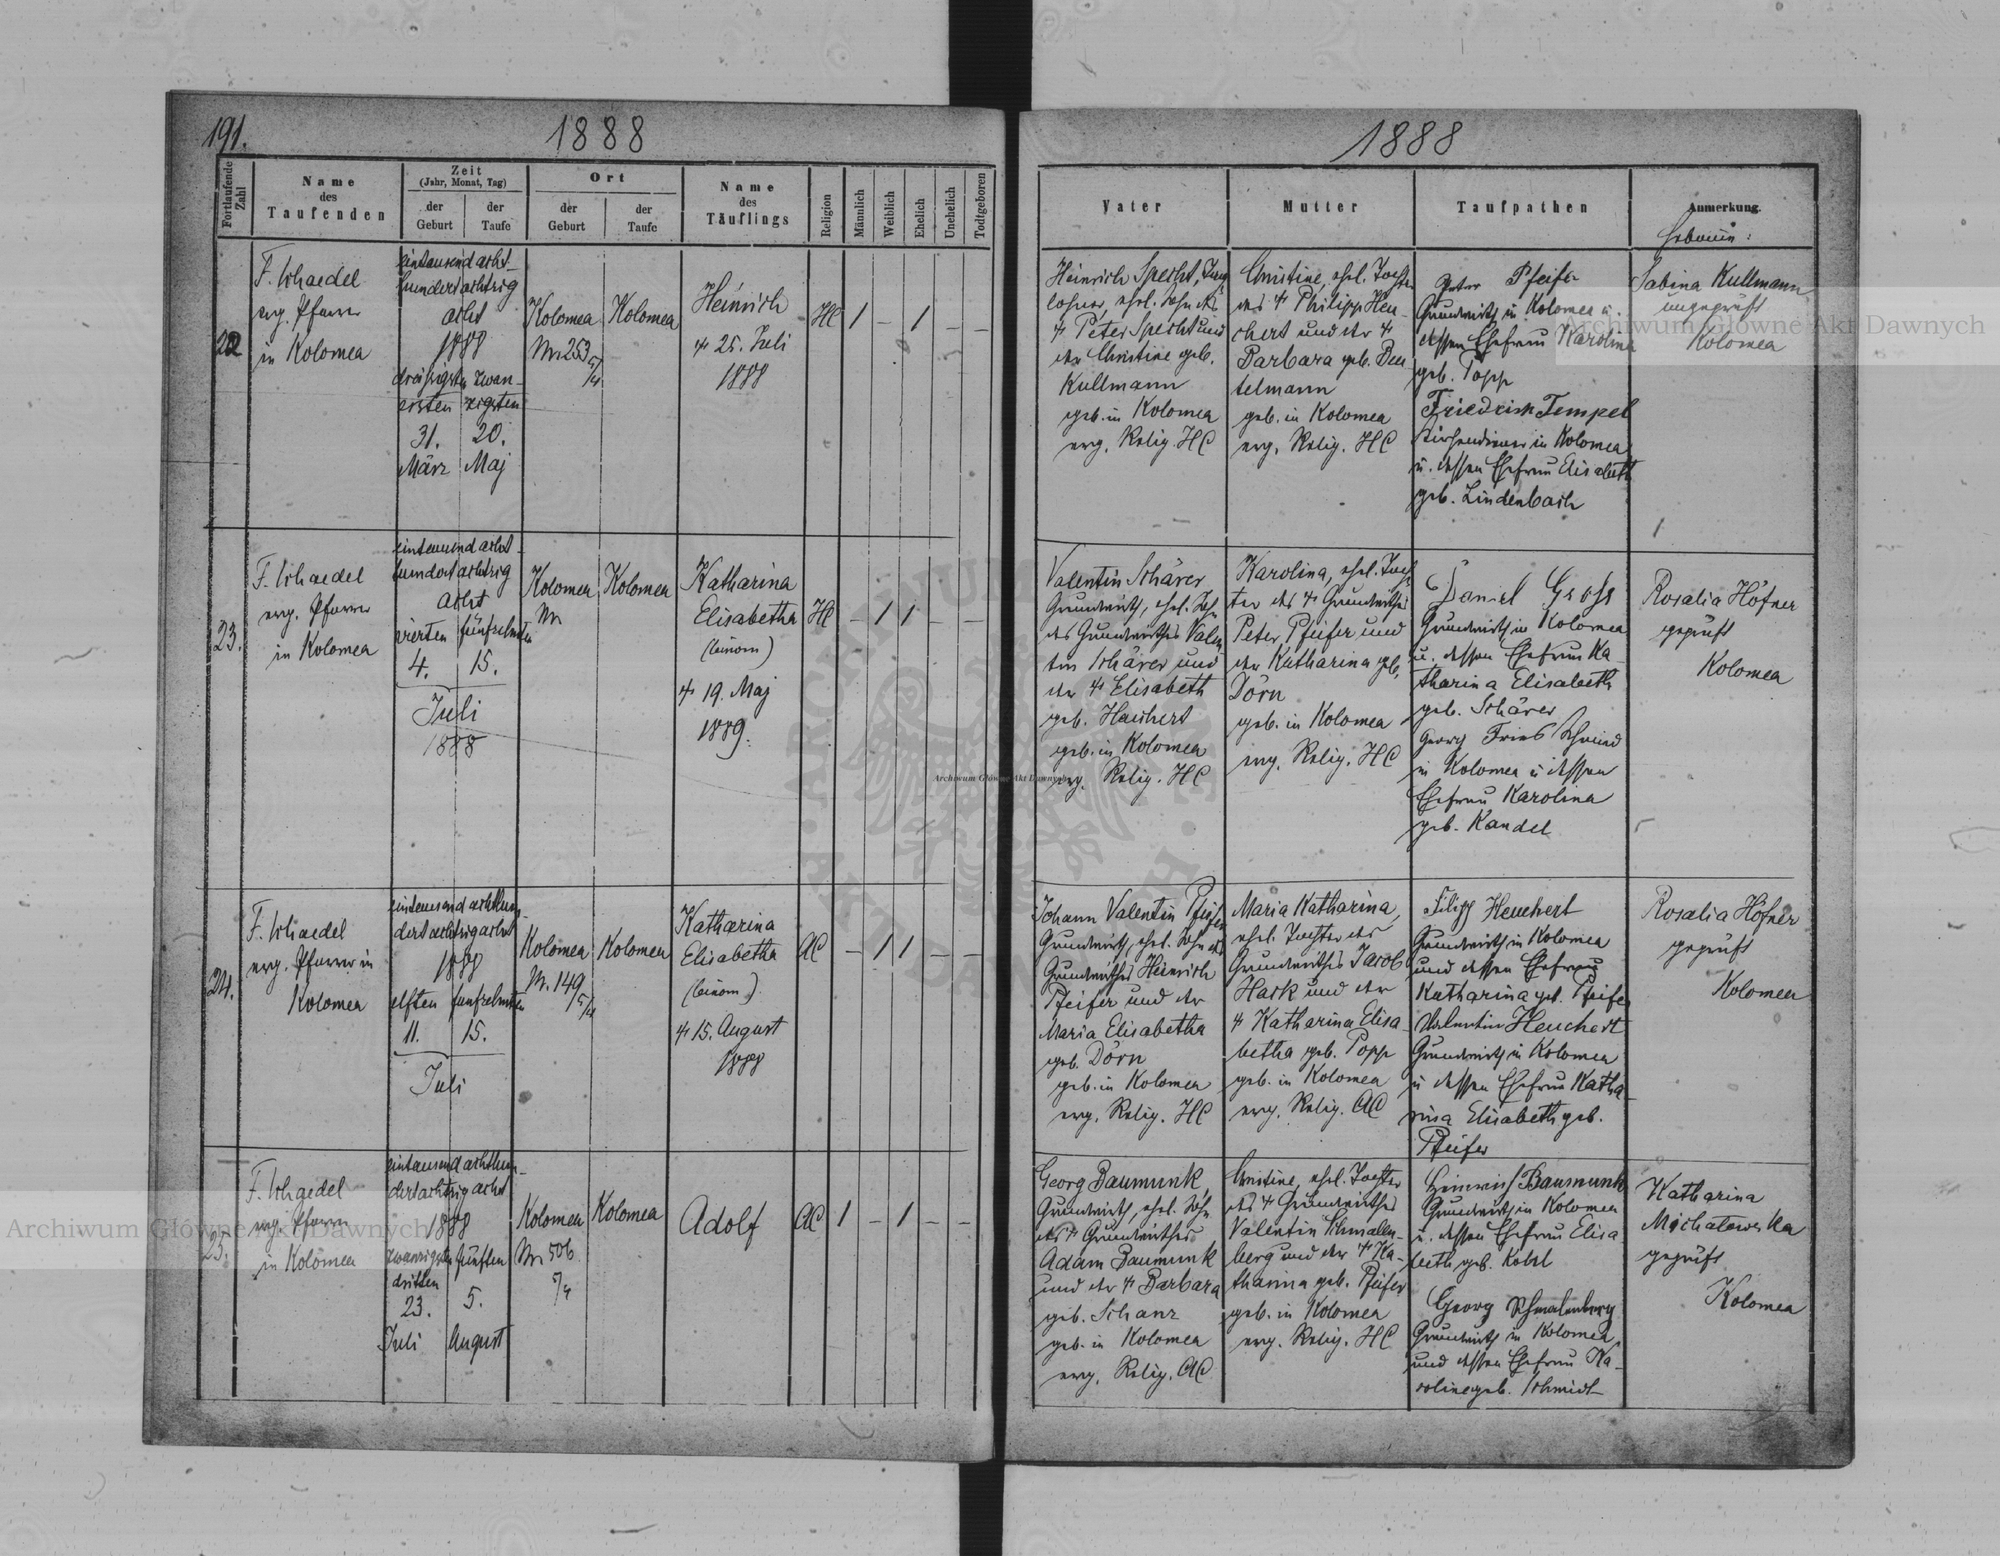 191.
1888
1888
Fortlaufende Zahl
Name
des
Taufenden
Zeit
(Jahr, Monat, Tag)
der
Geburt
der
Taufe
Ort
der
Geburt
der
Taufe
Name
des
Täuflings
Religion
Männlich
Weiblich
Ehelich
Unehelich
Todtgeboren
Vater
Mutter
Taufpathen
Anmerkung.
22
F. Schaedel
evg. Pfarrer
in Kolomea
eintausend acht-
hundert achtzig
acht
1888
dreißigsten zwan-
ersten zigsten
31. 20.
März Maj
Kolomea
Nr. 253
Kolomea
Heinrich
+ 25. Juli
1888
HC
/ – / – –
Heinrich Specht, Tag
löhner, ehel. Sohn des
+ Peter Specht und
der Christine geb.
Kullmann
geb. in Kolomea
evg. Relig. HC
Christine, ehel. Tochter
des + Philipp Heu-
chert und der +
Barbara geb. Beu
telmann
geb. in Kolomea
evg. Relig. HC
Peter Pfeifer
Grundwirth in Kolomea u.
dessen Ehefrau Karolina
geb. Popp
Friedrich Tempel
Kirchendiener in Kolomea
u. dessen Ehefrau Elisabeth
geb. Lindenbach
Sabina Kullmann
ungeprüft
Kolomea
23.
F. Schaedel
evg. Pfarrer
in Kolomea
eintausend acht-
hundert achtzig
acht
vierten fünfzehnten
4. 15.
Juli
1888
Kolomea
Nr.
Kolomea
Katharina
Elisabetha
(binom)
+ 19. Maj
1889.
HC
– / / – –
Valentin Schärer
Grundwirth, ehel. Sohn
des Grundwirthes Valen
tin Schärer und
der + Elisabeth
geb. Heuchert
geb. in Kolomea
evg. Relig. HC
Karolina, ehel. Toch
ter des + Grundwirthes
Peter Pfeifer und
der Katharina geb.
Dörn
geb. in Kolomea
evg. Relig. HC
Daniel Gross
Grundwirth in Kolomea
u. dessen Ehefrau Ka
tharina Elisabeth
geb. Schärer
Georg Fries Schmied
in Kolomea u dessen
Ehefrau Karolina
geb. Kandel
Rosalia Höfner
geprüft
Kolomea
24.
F. Schaedel
evg. Pfarrer in
Kolomea
eintausend achthun-
dert achtzig acht
1888
elften fünfzehnten
11. 15.
Juli
Kolomea
Nr. 149
Kolomea
Katharina
Elisabetha
(binom.)
+ 15. August
1888
AC
– / / – –
Johann Valentin Pfeifer
Grundwirth, ehel. Sohn des
Grundwirthes Heinrich
Pfeifer und der
Maria Elisabetha
geb. Dörn
geb. in Kolomea
evg. Relig. HC
Maria Katharina,
ehel. Tochter des
Grundwirthes Jacob
Hark und der
+ Katharina Elisa-
betha geb. Popp
geb. in Kolomea
evg. Relig. AC
Filipp Heuchert
Grundwirth in Kolomea
und dessen Ehefrau
Katharina geb. Pfeifer
Valentin Heuchert
Grundwirth in Kolomea
u dessen Ehefrau Katha-
rina Elisabeth geb.
Pfeifer
Rosalia Höfner
geprüft
Kolomea
25.
F. Schaedel
evg. Pfarrer
in Kolomea
eintausend achthun-
dert achtzig acht
1888
zwanzigsten fünften
dritten
23. 5.
Juli August
Kolomea
Nr. 506
Kolomea
Adolf
AC
/ – / – –
Georg Baumunk,
Grundwirth, ehel. Sohn
des + Grundwirthes
Adam Baumunk
und der + Barbara
geb. Schanz
geb. in Kolomea
evg. Relig. AC
Christine, ehel. Tochter
des + Grundwirthes
Valentin Schmallen-
berg und der + Ka-
tharina geb. Pfeifer
geb. in Kolomea
evg. Relig. HC
Heinrich Baumunk
Grundwirth in Kolomea
u. dessen Ehefrau Elisa-
beth geb.
Georg Schmalenberg
Grundwirth in Kolomea,
und dessen Ehefrau Ka-
roline geb. Schmidt
Katharina
Michałowska
geprüft
Kolomea
Archiwum Główne Akt Dawnych
Archiwum Główne Akt Dawnych
Archiwum Główne Akt Dawnych